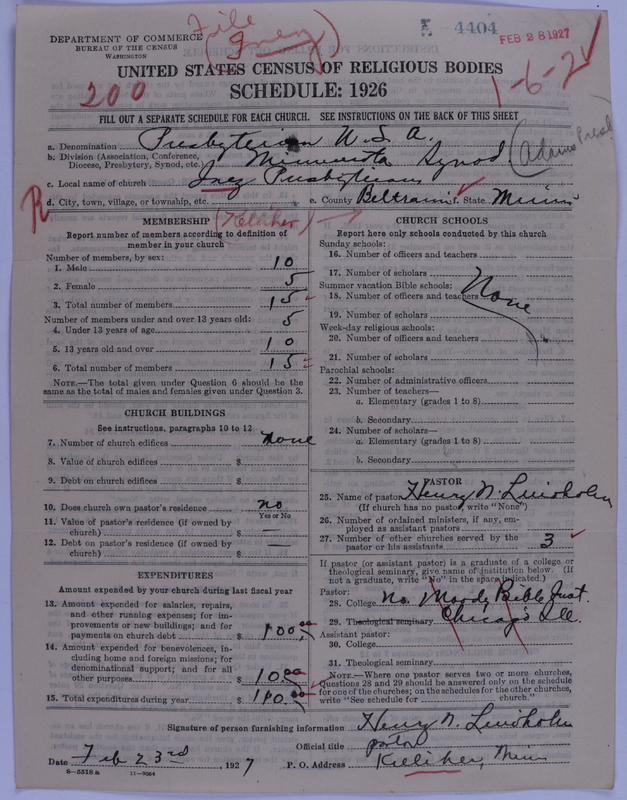 DEPARTMENT OF COMMERCE
BUREAU OF THE CENSUS
WASHINGTON
File
Inez
4404
FEB 28 1927
UNITED STATES CENSUS OF RELIGIOUS BODIES
200
SCHEDULE: 1926
1-6-2
FILL OUT A SEPARATE SCHEDULE FOR EACH CHURCH. SEE INSTRUCTIONS ON THE BACK OF THIS SHEET
a. Denomination Presbyterian U.S.A.
b. Division (Association, Conference, Diocese, Presbytery, Synod, etc.) Minnesota Synod
(Adams Presb
c. Local name of church Inez Presbyterian
d. City, town, village, or township, etc. e. County Beltrami f. State Minn
R
(Kelliher)
MEMBERSHIP
Report number of members according to definition of
member in your church
Number of members, by sex:
1. Male 10
2. Female 5
3. Total number of members 15
Number of members under and over 13 years old:
4. Under 13 years of age 5
5. 13 years old and over 10
6. Total number of members 15
NOTE.—The total given under Question 6 should be the
same as the total of males and females given under Question 3.
CHURCH BUILDINGS
See instructions, paragraphs 10 to 12
7. Number of church edifices none
8. Value of church edifices $
9. Debt on church edifices $
10. Does church own pastor's residence no
Yes or No
11. Value of pastor's residence (if owned by
church) $ —
12. Debt on pastor's residence (if owned by
church) $ —
EXPENDITURES
Amount expended by your church during last fiscal year
13. Amount expended for salaries, repairs,
and other running expenses; for im-
provements or new buildings; and for
payments on church debt $ 100.00
14. Amount expended for benevolences, in-
cluding home and foreign missions; for
denominational support; and for all
other purposes $ 10.00
15. Total expenditures during year $ 110.00
CHURCH SCHOOLS
Report here only schools conducted by this church
Sunday schools:
16. Number of officers and teachers
17. Number of scholars
Summer vacation Bible schools:
18. Number of officers and teachers None
19. Number of scholars
Week-day religious schools:
20. Number of officers and teachers
21. Number of scholars
Parochial schools:
22. Number of administrative officers
23. Number of teachers—
a. Elementary (grades 1 to 8)
b. Secondary
24. Number of scholars—
a. Elementary (grades 1 to 8)
b. Secondary
PASTOR
25. Name of pastor Henry N. Lindholm
(If church has no pastor, write "None")
26. Number of ordained ministers, if any, em-
ployed as assistant pastors
27. Number of other churches served by the
pastor or his assistants 3
If pastor (or assistant pastor) is a graduate of a college or
theological seminary, give name of institution below. (If
not a graduate, write "No" in the space indicated.)
Pastor:
28. College no Moody Bible Inst.
29. Theological seminary Chicago Ill.
Assistant pastor:
30. College
31. Theological seminary
NOTE.—Where one pastor serves two or more churches,
Questions 28 and 29 should be answered only on the schedule
for one of the churches; on the schedules for the other churches,
write "See schedule for church."
Signature of person furnishing information Henry N. Lindholm
Official title pastor
Date Feb 23rd, 1927 P. O. Address Kelliher, Minn
8—5518 a 11—9084